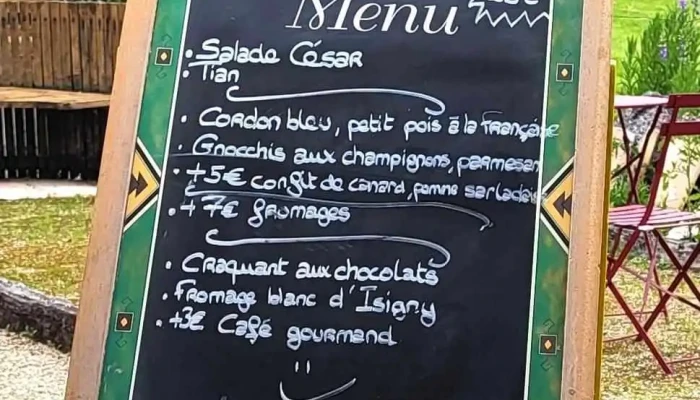 Menu
• Salade César
• Tian
• Cordon bleu, petit pois à la française
• Gnocchis aux champignons, parmesan
• +5€ confit de canard, pomme sarladaise
• +7€ fromages
• Craquant aux chocolats
• Fromage blanc d'Isigny
• +3€ Café gourmand